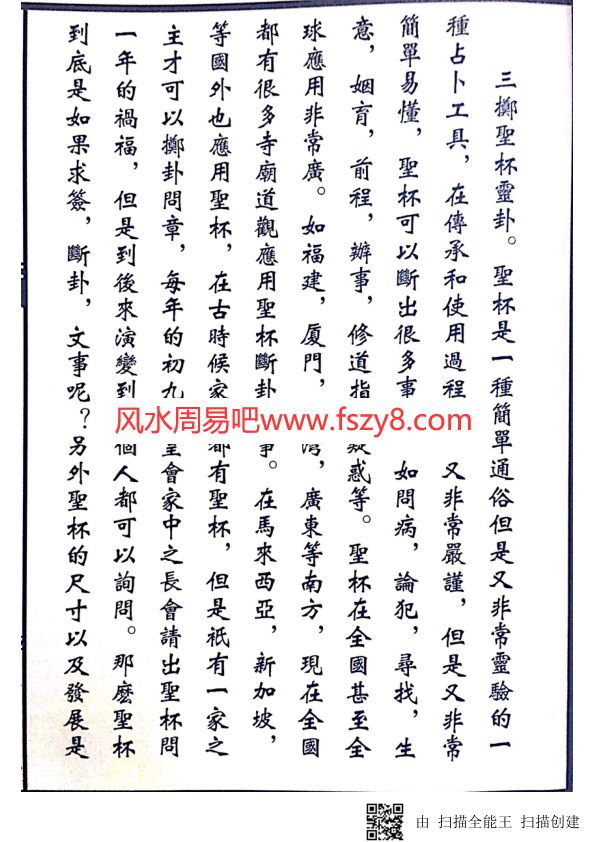 三擲聖杯靈卦。聖杯是一種簡單通俗但是又非常靈驗的一
種占卜工具，在傳承和使用過程又非常嚴謹，但是又非常
簡單易懂，聖杯可以斷出很多事如問病，論犯，尋找，生
意，姻育，前程，辦事，修道指疑惑等。聖杯在全國甚至全
球應用非常廣。如福建，厦門，灣，廣東等南方，現在全國
都有很多寺廟道觀應用聖杯斷卦事。在馬來西亞，新加坡，
等國外也應用聖杯，在古時候家都有聖杯，但是祇有一家之
主才可以擲卦問章，每年的初九堂會家中之長會請出聖杯問
一年的禍福，但是到後來演變到個人都可以詢問。那麽聖杯
到底是如果求簽，斷卦，文事呢？另外聖杯的尺寸以及發展是
风水周易吧www.fszy8.com
由 扫描全能王 扫描创建